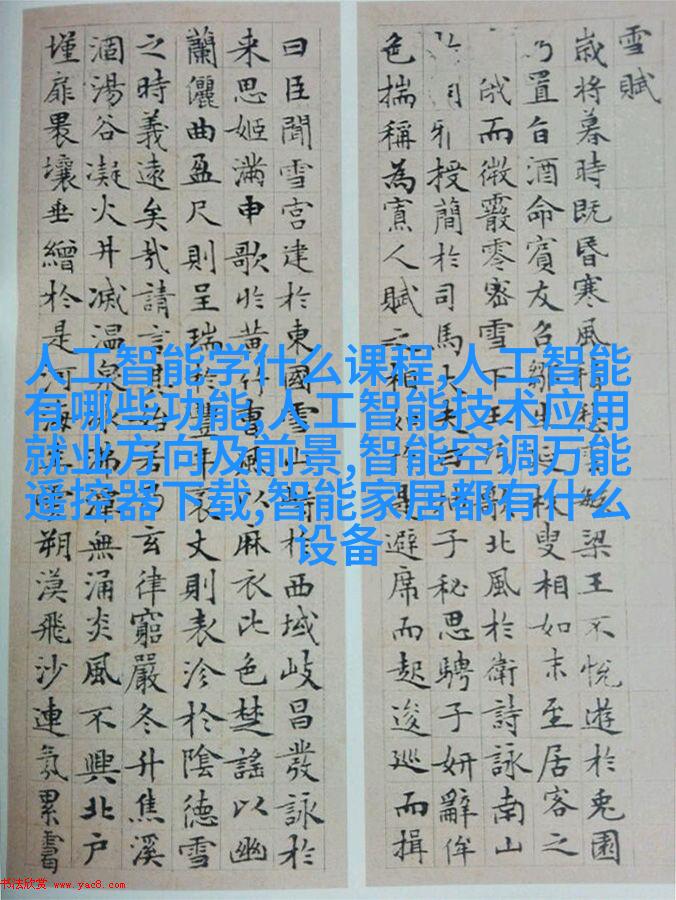 雪賦
歲將暮時既昏寒風梁王不悅遊於兔園
乃置旨酒命賓友召鄒生延枚叟相如末至居客之
俄而微霰零密雪下王歌北風於衛詩詠南山
授簡於司馬大夫曰子秘思騁子妍辭侔
色揣稱為寡人賦之相如於是避席而起逡巡而揖
曰臣聞雪宮建於東國雪山峙於西域岐昌發詠於
来思姬滿申歌於黃竹曹風以麻衣比色楚謠以幽
蘭儷曲盈尺則呈瑞於豐年袤丈則表沴於陰德雪
之時義遠矣哉請言其始若乃玄律窮嚴冬升焦溪
涸湯谷凝火井滅溫泉冰沸潭無涌炎風不興北戶
墐扉畏壤垂繒於是河海朔漠飛沙連氛累靄
人工智能学什么课程,人工智能
有哪些功能,人工智能技术应用
就业方向及前景,智能空调万能
遥控器下载,智能家居都有什么
设备
书法欣赏 www.yac8.com